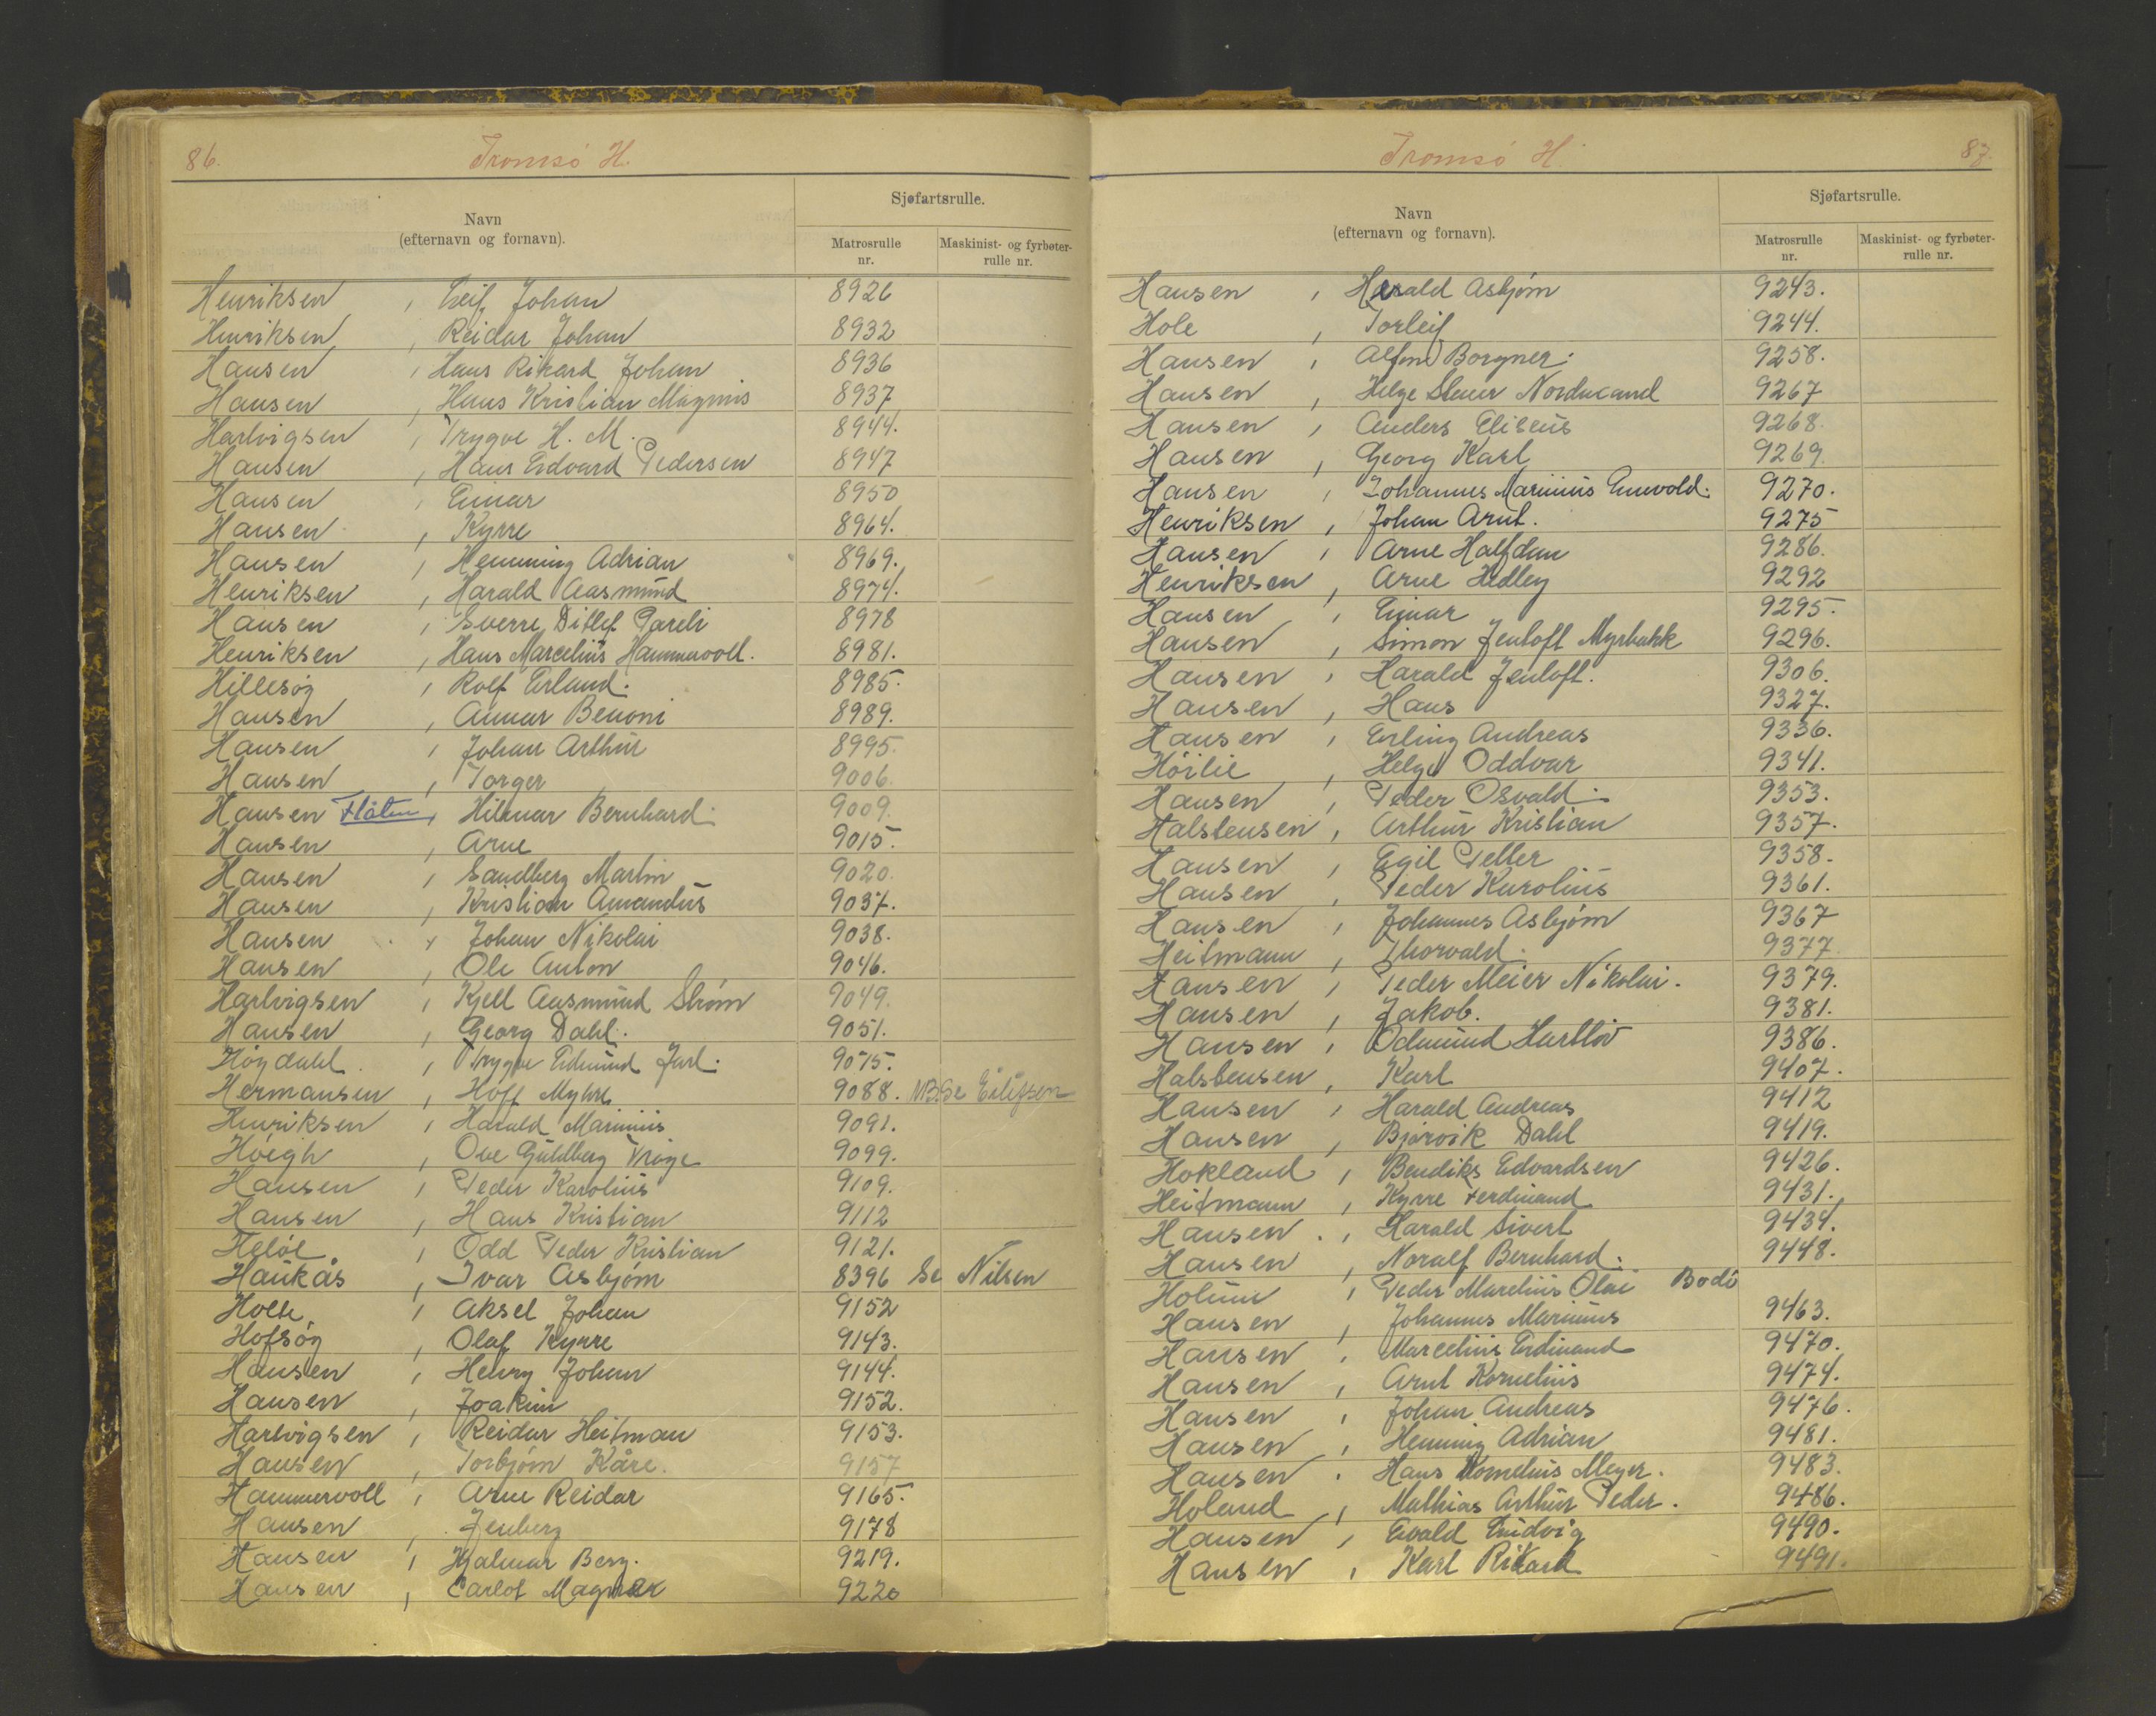 86.
Tromsø H.
Sjøfartsrulle.
Navn
(efternavn og fornavn).
Matrosrulle nr.
Maskinist- og fyrbøter-rulle nr.
Henriksen , Leif Johan 8926
Henriksen , Reidar Johan 8932
Hansen , Hans Rikard Johan 8936
Hansen , Hans Kristian Magnus 8937
Hartvigsen , Trygve H. M. 8944.
Hansen , Hans Edvard Pedersen 8947
Hansen , Einar 8950
Hansen , Kyrre 8964.
Hansen , Hemming Adrian 8969.
Henriksen , Harald Aasmund 8974.
Hansen , Sverre Ditlef Pareli 8978
Henriksen , Hans Marcelius Hammervoll. 8981.
Hillesøy , Rolf Erland. 8985.
Hansen , Annar Benoni 8989.
Hansen , Johan Arthur 8995.
Hansen , Torger 9006.
Hansen Flåten , Hilmar Bernhard. 9009.
Hansen , Arne 9015.
Hansen , Sandberg Martin 9020.
Hansen , Kristian Amandus 9037.
Hansen , Johan Nikolai 9038.
Hansen , Ole Anton 9046.
Hartvigsen , Kjell Aasmund Strøm 9049.
Hansen , Georg Dahl. 9051.
Høydahl , Trygve Edmund Jarl. 9075.
Hermansen , Hoff Myhre 9088. NB. Se Eilifsen
Henriksen , Harald Marinius 9091.
Høigh , Ove Guldberg 9099.
Hansen , Peder Karolius 9109.
Hansen , Hans Kristian 9112
, Odd Peder Kristian 9121.
Haukås , Ivar Asbjørn 8396 Se Nilsen
Holte , Aksel Johan 9152
Hofsøy , Olaf Kyrre 9143.
Hansen , Henry Johan 9144.
Hansen , Joakim 9152.
Hartvigsen , Reidar Heitman 9153.
Hansen , Torbjørn Kåre. 9157
Hammervoll , Arne Reidar 9165.
Hansen , Jenberg 9178
Hansen , Hjalmar Berg. 9219.
Hansen , Carlot Magnar 9220
87.
Tromsø H.
Sjøfartsrulle.
Navn
(efternavn og fornavn).
Matrosrulle nr.
Maskinist- og fyrbøter-rulle nr.
Hansen , Harald Asbjørn 9243.
Hole , Torleif 9244.
Hansen , Alfon Borgner. 9258.
Hansen , Helge Steuer 9267
Hansen , Anders Eliseus 9268.
Hansen , Georg Karl 9269.
Hansen , Johannes Marinius Enevold. 9270.
Henriksen , Johan Arnt. 9275
Hansen , Arne Halfdan 9286.
Henriksen , Arne Hedley 9292
Hansen , Einar 9295.
Hansen , Simon Jentoft Myrbakk 9296.
Hansen , Harald Jentoft. 9306.
Hansen , Hans 9327.
Hansen , Erling Andreas 9336.
Høilie , Helge Oddvar 9341.
Hansen , Peder Osvald. 9353.
Halstensen , Arthur Kristian 9357.
Hansen , Egil Petter 9358.
Hansen , Peder Karolius 9361.
Hansen , Johannes Asbjørn 9367
Heitmann , Thorvald. 9377
Hansen , Peder Meier Nikolai. 9379.
Hansen , Jakob. 9381.
Hansen , Odmund Hartløv 9386.
Halstensen , Karl 9407.
Hansen , Harald Andreas 9412
Hansen , Bjarvik Dahl 9419.
Hokland , Bendiks Edvardsen 9426.
Heitmann , Kyrre Ferdinand 9431.
Hansen , Harald Sivert 9434.
Hansen , Noralf Bernhard. 9448.
Holum , Peder Marelius Olai Bodø
Hansen , Johannes Marinius 9463.
Hansen , Marcelius Erdinand 9470.
Hansen , Arnt Kornelius 9474.
Hansen , Johan Andreas 9476.
Hansen , Henning Adrian 9481.
Hansen , Hans Kornelius Meyer. 9483.
Holand , Mathias Arthur Peder. 9486.
Hansen , Evald Ludvig 9490.
Hansen , Karl Rikard 9491.